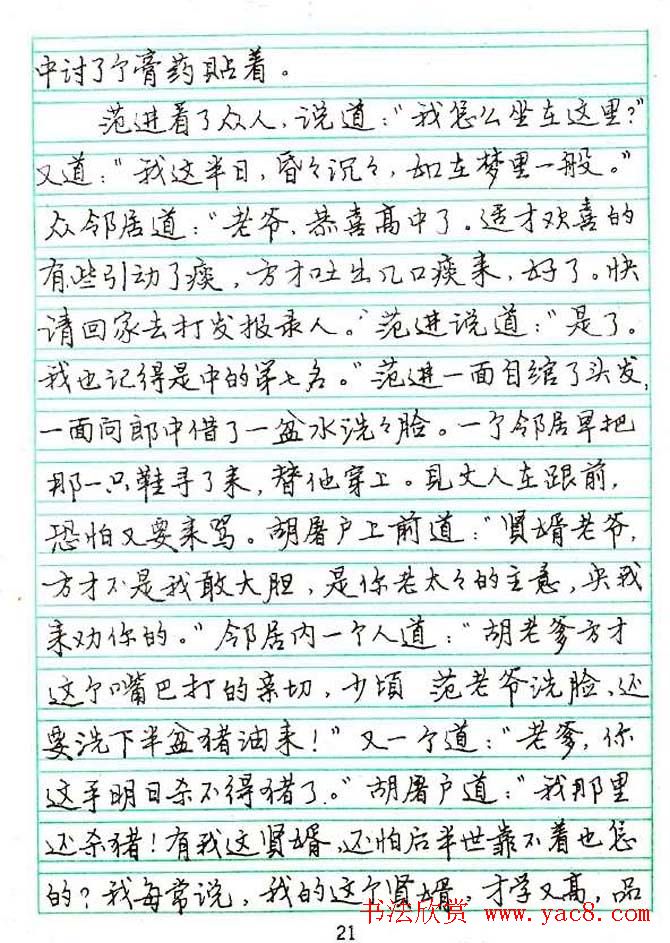 中讨了个膏药贴着。
范进看了众人，说道：“我怎么坐在这里？”
又道：“我这半日，昏々沉々，如在梦里一般。”
众邻居道：“老爷，恭喜高中了。适才欢喜的
有些引动了痰，方才吐出几口痰来，好了。快
请回家去打发报录人。”范进说道：“是了。
我也记得是中的第七名。”范进一面自绾了头发，
一面问郎中借了一盆水洗々脸。一个邻居早把
那一只鞋寻了来，替他穿上。见丈人在跟前，
恐怕又要来骂。胡屠户上前道：“贤婿老爷，
方才不是我敢大胆，是你老太々的主意，央我
来劝你的。”邻居内一个人道：“胡老爹方才
这个嘴巴打的亲切，少顷 范老爷洗脸，还
要洗下半盆猪油来！”又一个道：“老爹，你
这手明日杀不得猪了。”胡屠户道：“我那里
还杀猪！有我这贤婿，还怕后半世靠不着也怎
的？我每常说，我的这个贤婿，才学又高，品
书法欣赏 www.yac8.com
21